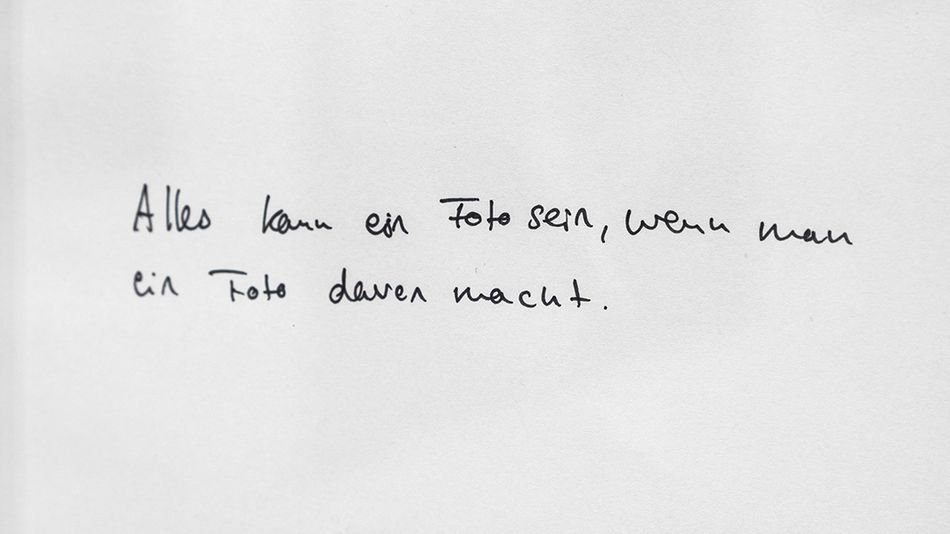 Alles kann ein Foto sein, wenn man
ein Foto davon macht.